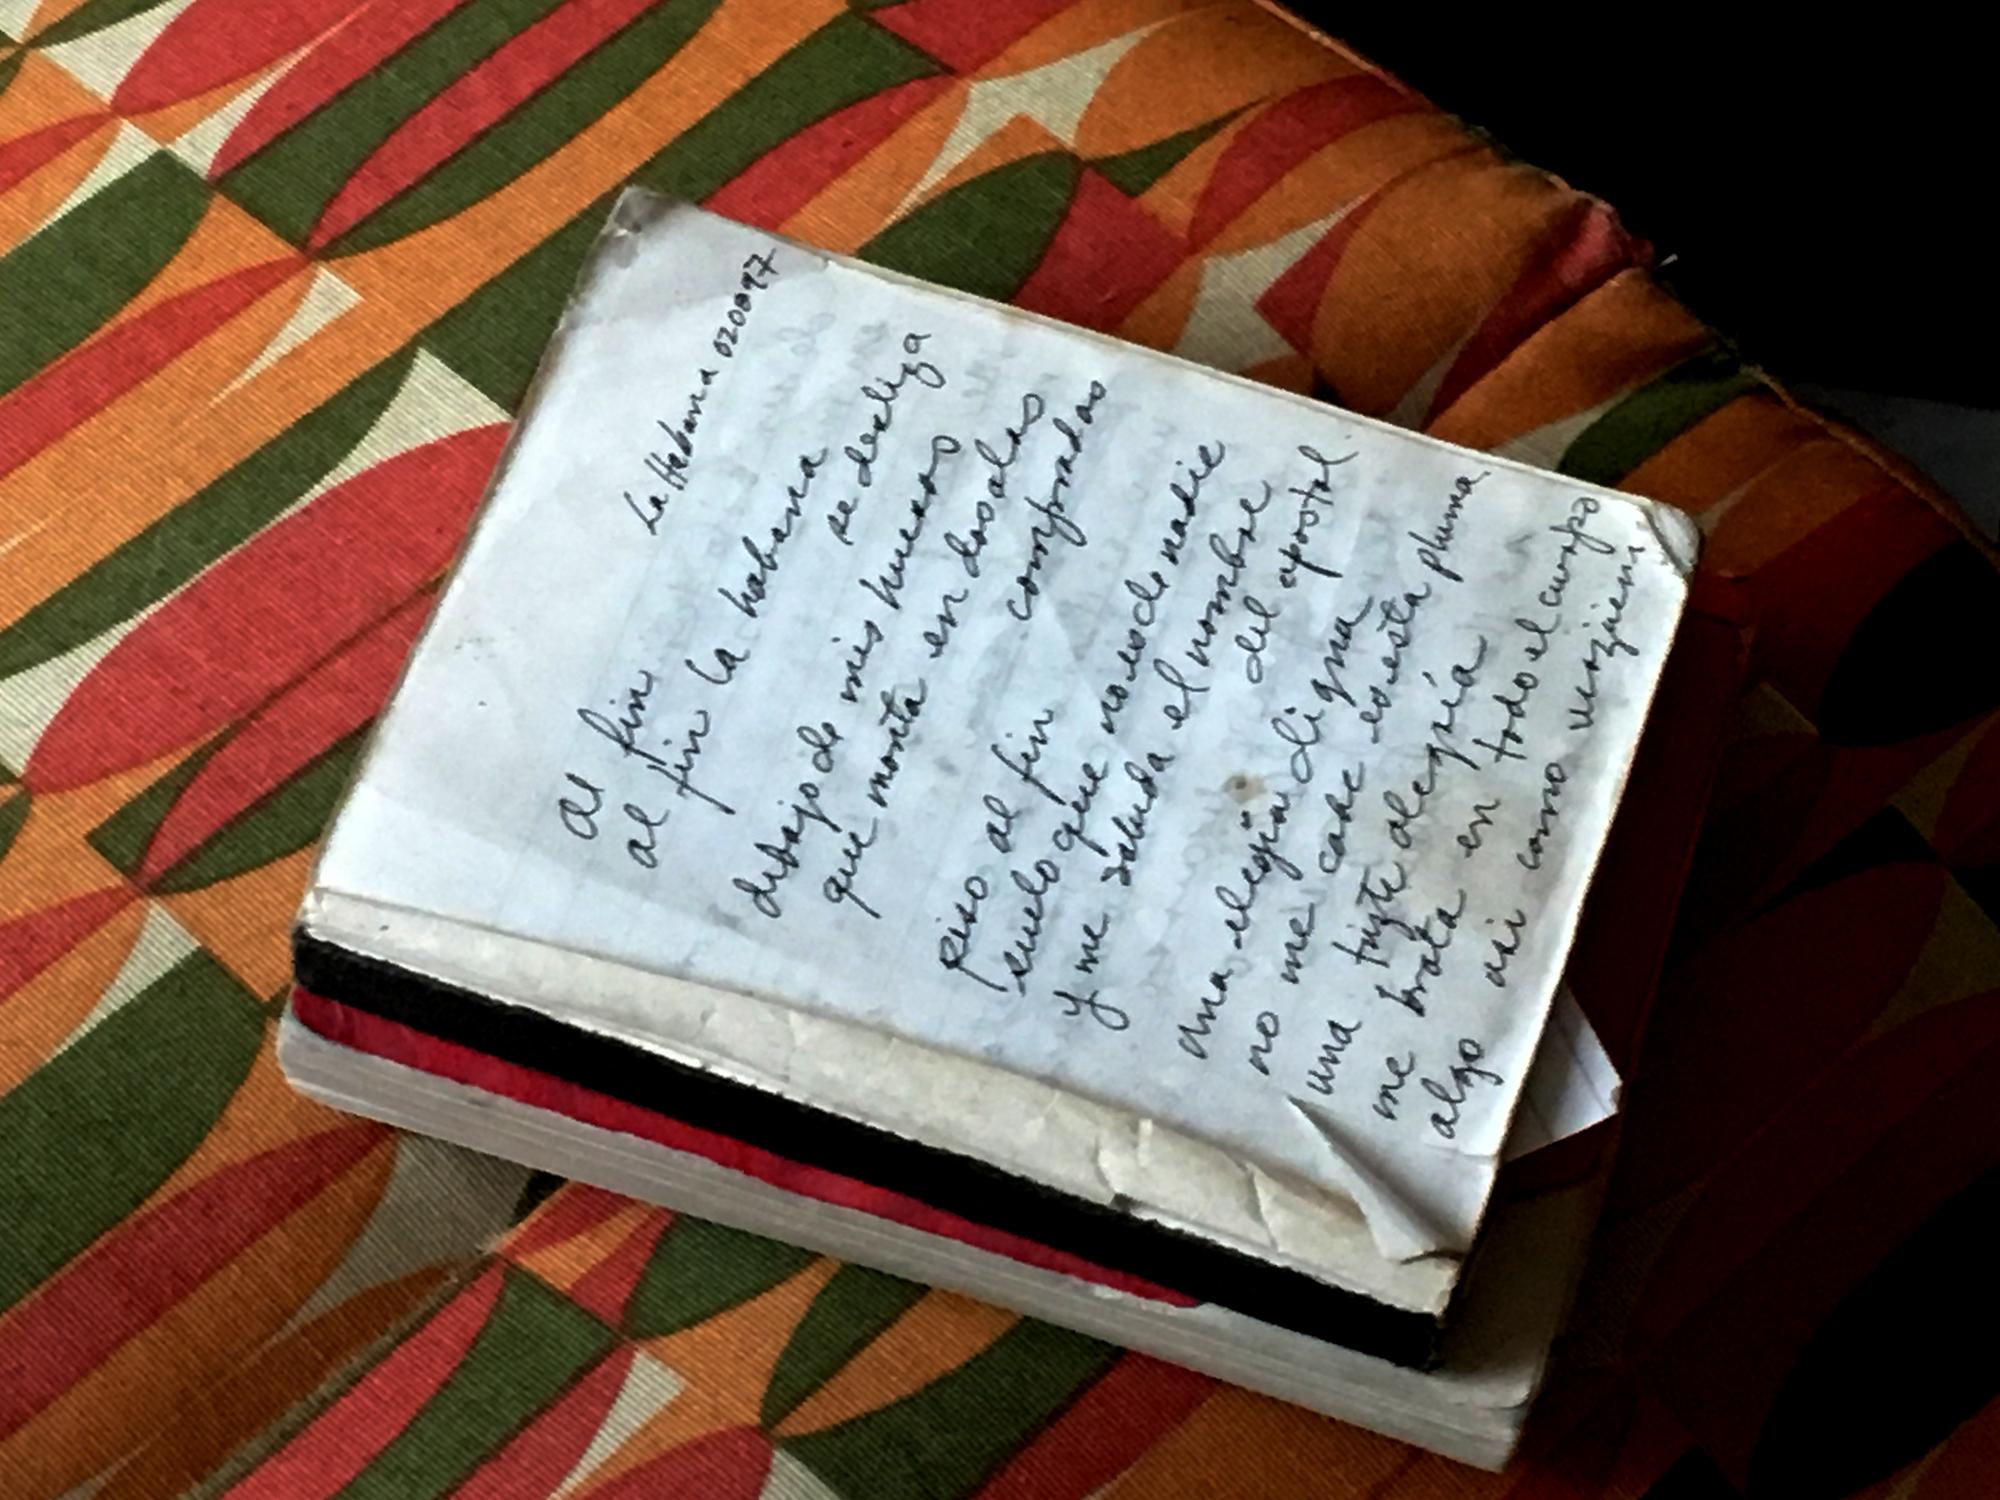 La Habana 020897
al fin
al fin la habana
se desliza
debajo de mis huesos
que monta en dos alas
compradas
piso al fin
suelo que no es de nadie
y me saluda el nombre
del apostol
una elegia digna
no me cabe es esta pluma
una triste alegría
me brota en todo el cuerpo
algo asi como